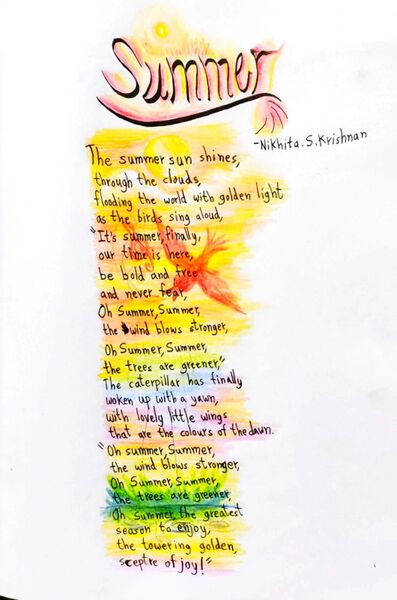 Summer
-Nikhita.S.Krishnan
The summer sun shines,
through the clouds,
flooding the world with golden light
as the birds sing aloud,
"It's summer, finally,
our time is here,
be bold and free
and never fear,
Oh Summer, Summer,
the wind blows stronger,
Oh Summer, Summer,
the trees are greener,"
The caterpillar has finally
woken up with a yawn,
with lovely little wings
that are the colours of the dawn.
"Oh summer, Summer,
the wind blows stronger,
Oh Summer, Summer,
the trees are greener,
Oh Summer the greatest
season to enjoy,
the towering golden,
sceptre of joy!"